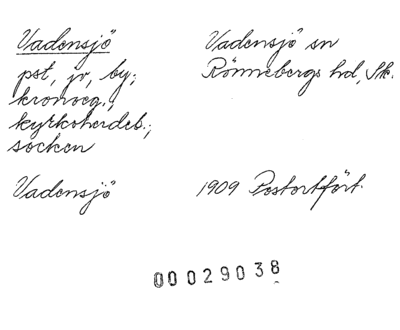 Vadensjö Vadensjö sn
pst, jv, by; Rönnebergs hd, Sk.
kronoeg.,
kyrkoherdeb.;
socken
Vadensjö 1909 Postortfört.
00029038